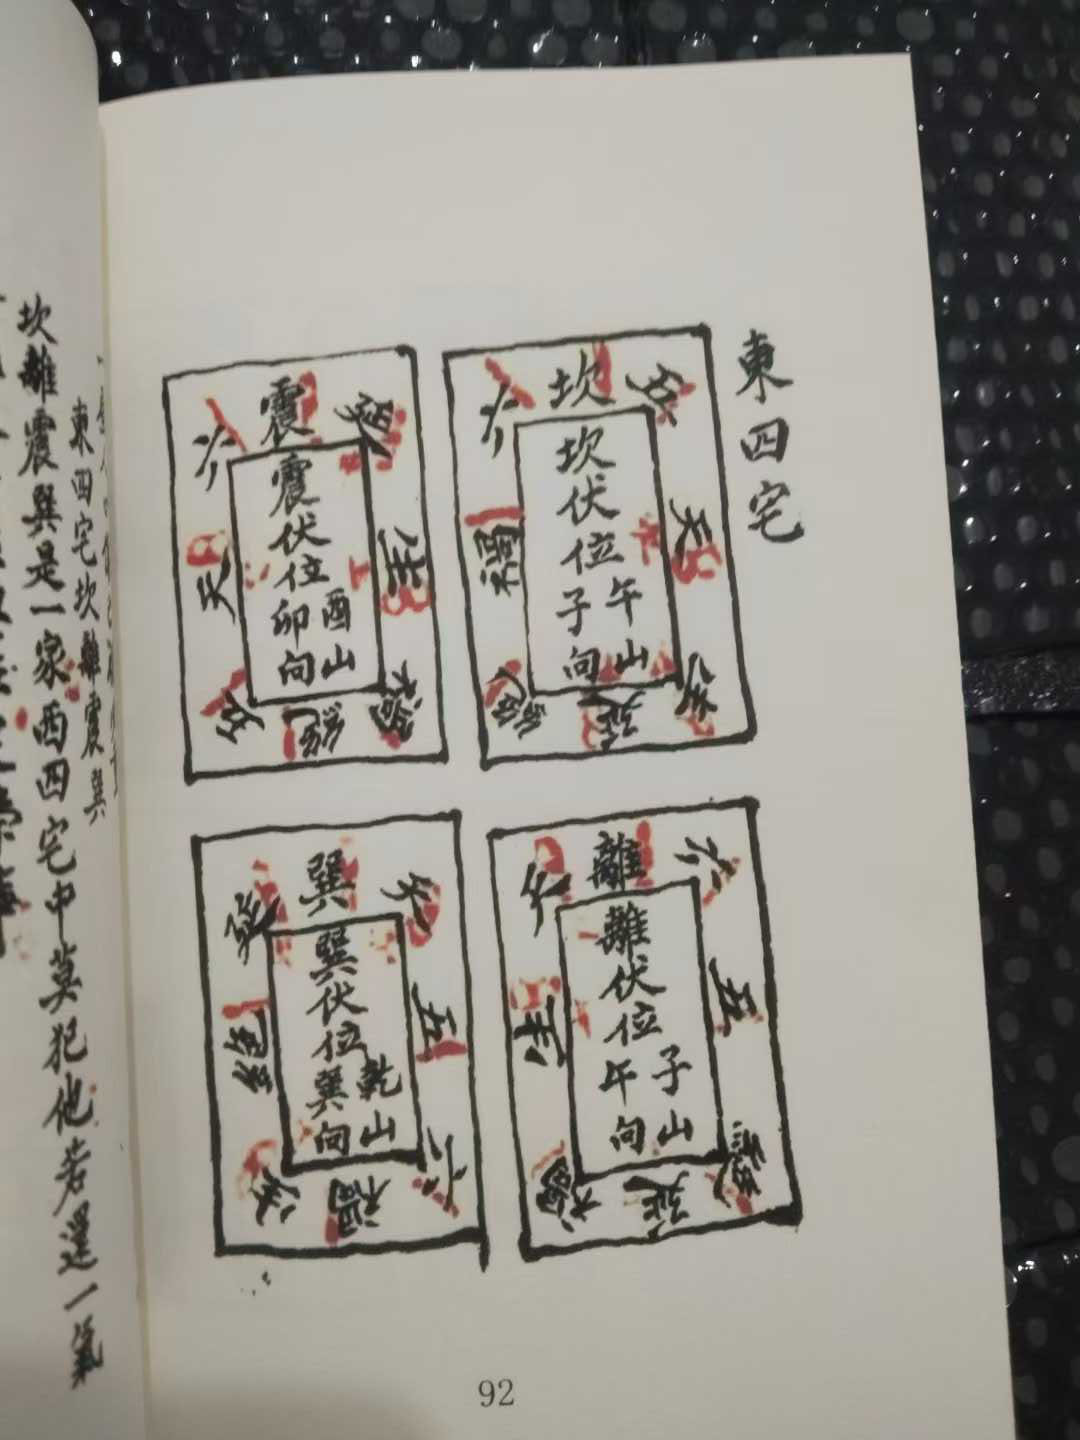 東四宅
坎
五
天
生
延
絕
禍
六
坎伏位
午山
子向
震
延
生
禍
絕
五
天
六
震伏位
酉山
卯向
離
六
五
絕
延
禍
生
天
離伏位
子山
午向
巽
天
五
六
禍
生
絕
延
巽伏位
乾山
巽向
東四宅坎離震巽
坎離震巽是一家西四宅中莫犯他若還一氣
92